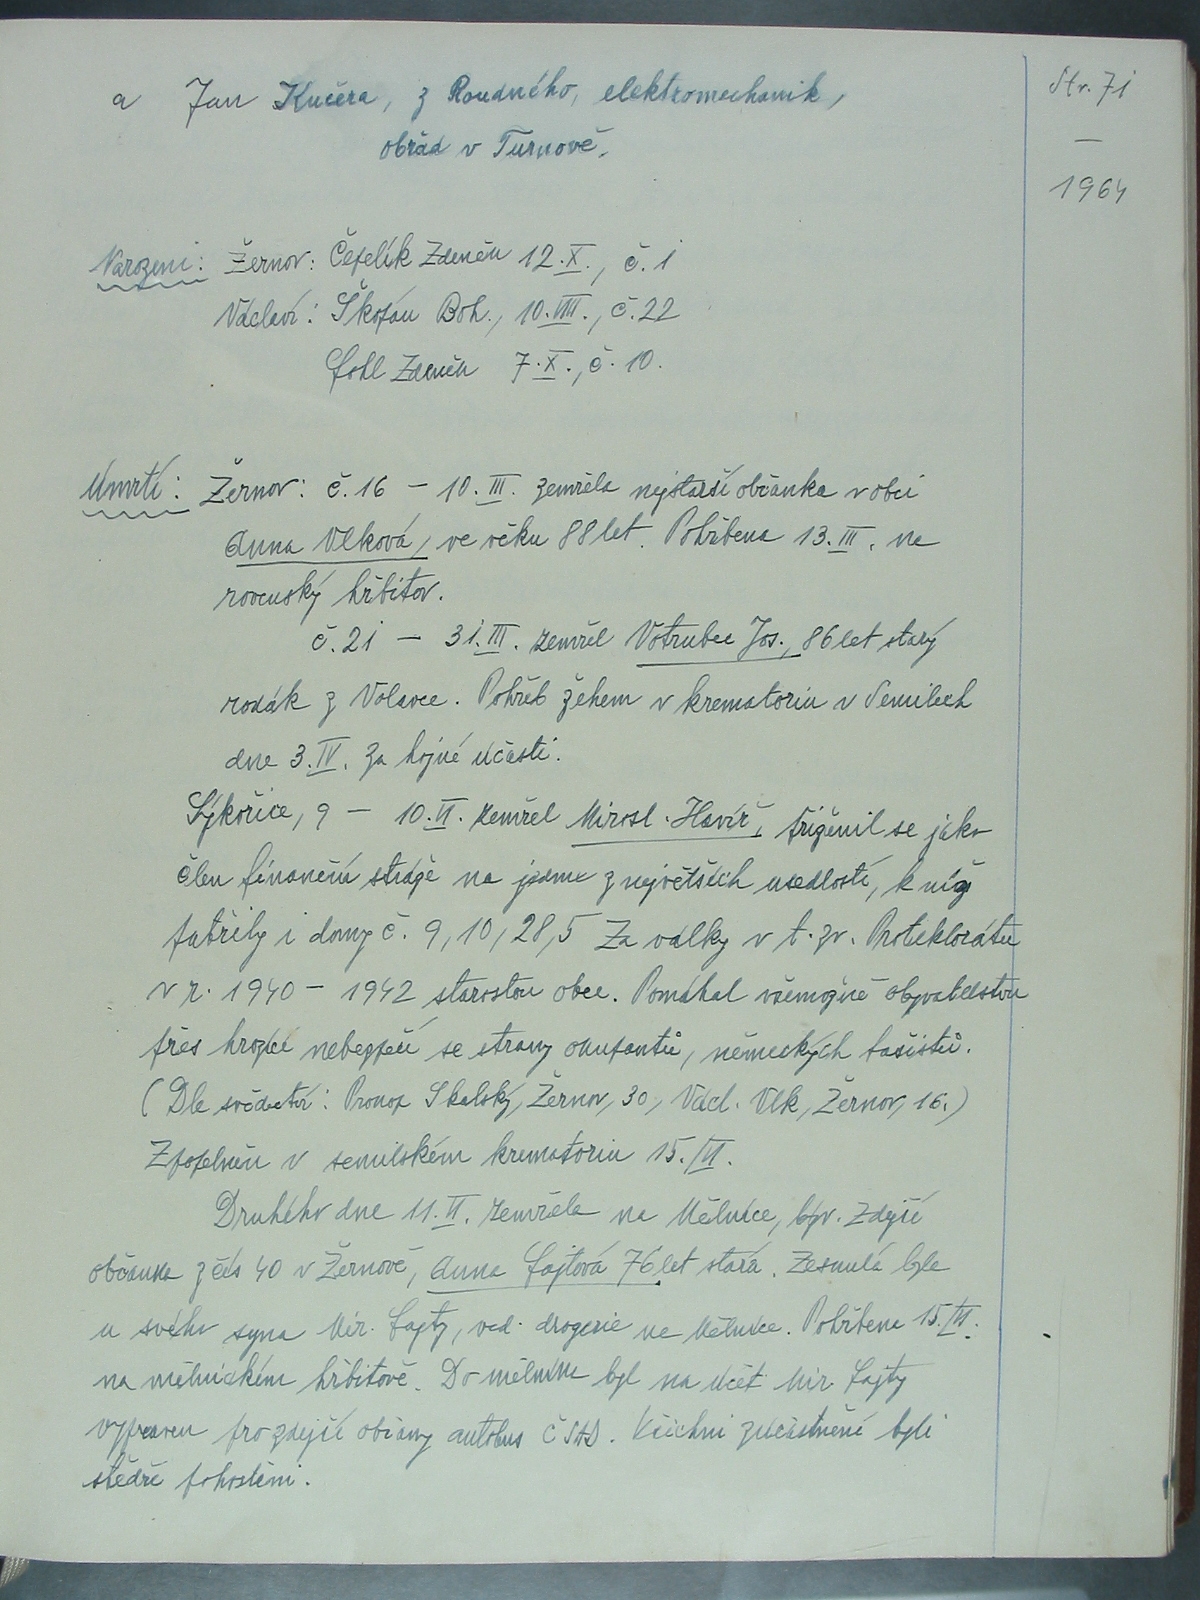 Str. 71
—
1964
a Jan Kučera, z Roudného, elektromechanik,
obřad v Turnově.
Narozeni: Žernov: Čepelík Zdeněk 12.X., č. 1
Václaví: Škopán Boh., 10.VIII., č. 22
Zdeněk 7.X., č. 10.
Úmrtí: Žernov: č. 16 – 10. III. zemřela nejstarší občanka v obci
Anna Vlková, ve věku 88 let. Pohřbena 13. III. na
rovenský hřbitov.
č. 21 – 31. III. zemřel Votrubec Jos., 86 let starý
rodák z Volavce. Pohřeb žehem v krematoriu v Semilech
dne 3. IV. za hojné účasti.
Sýkořice, 9 – 10. VI. zemřel Mirosl. Havíř, přiženil se jako
člen finanční stráže na jednu z největších usedlostí, k níž
patřily i domy č. 9, 10, 28, 5 Za války v t. zv. Protektorátu
v r. 1940 – 1942 starostou obce. Pomáhal všemožně obyvatelstvu
přes hrozící nebezpečí se strany okupantů, německých fašistů.
(Dle svědectví: Prokop Skalský, Žernov, 30, Václ. Vlk, Žernov, 16.)
Zpopelněn v semilském krematoriu 15. /VI.
Druhého dne 11. VI. zemřela na Mělníce, býv. zdejší
občanka z čís 40 v Žernově, Anna Fajtová 76 let stará. Zesnulá byla
u svého syna Mir. Fajty, ved. drogerie na Mělníce. Pohřbena 15. /VI.
na mělnickém hřbitově. Do mělníka byl na účet Mir. Fajty
vypraven pro zdejší občany autobus ČSAD. Všichni zúčastnění byli
štědře pohoštěni.